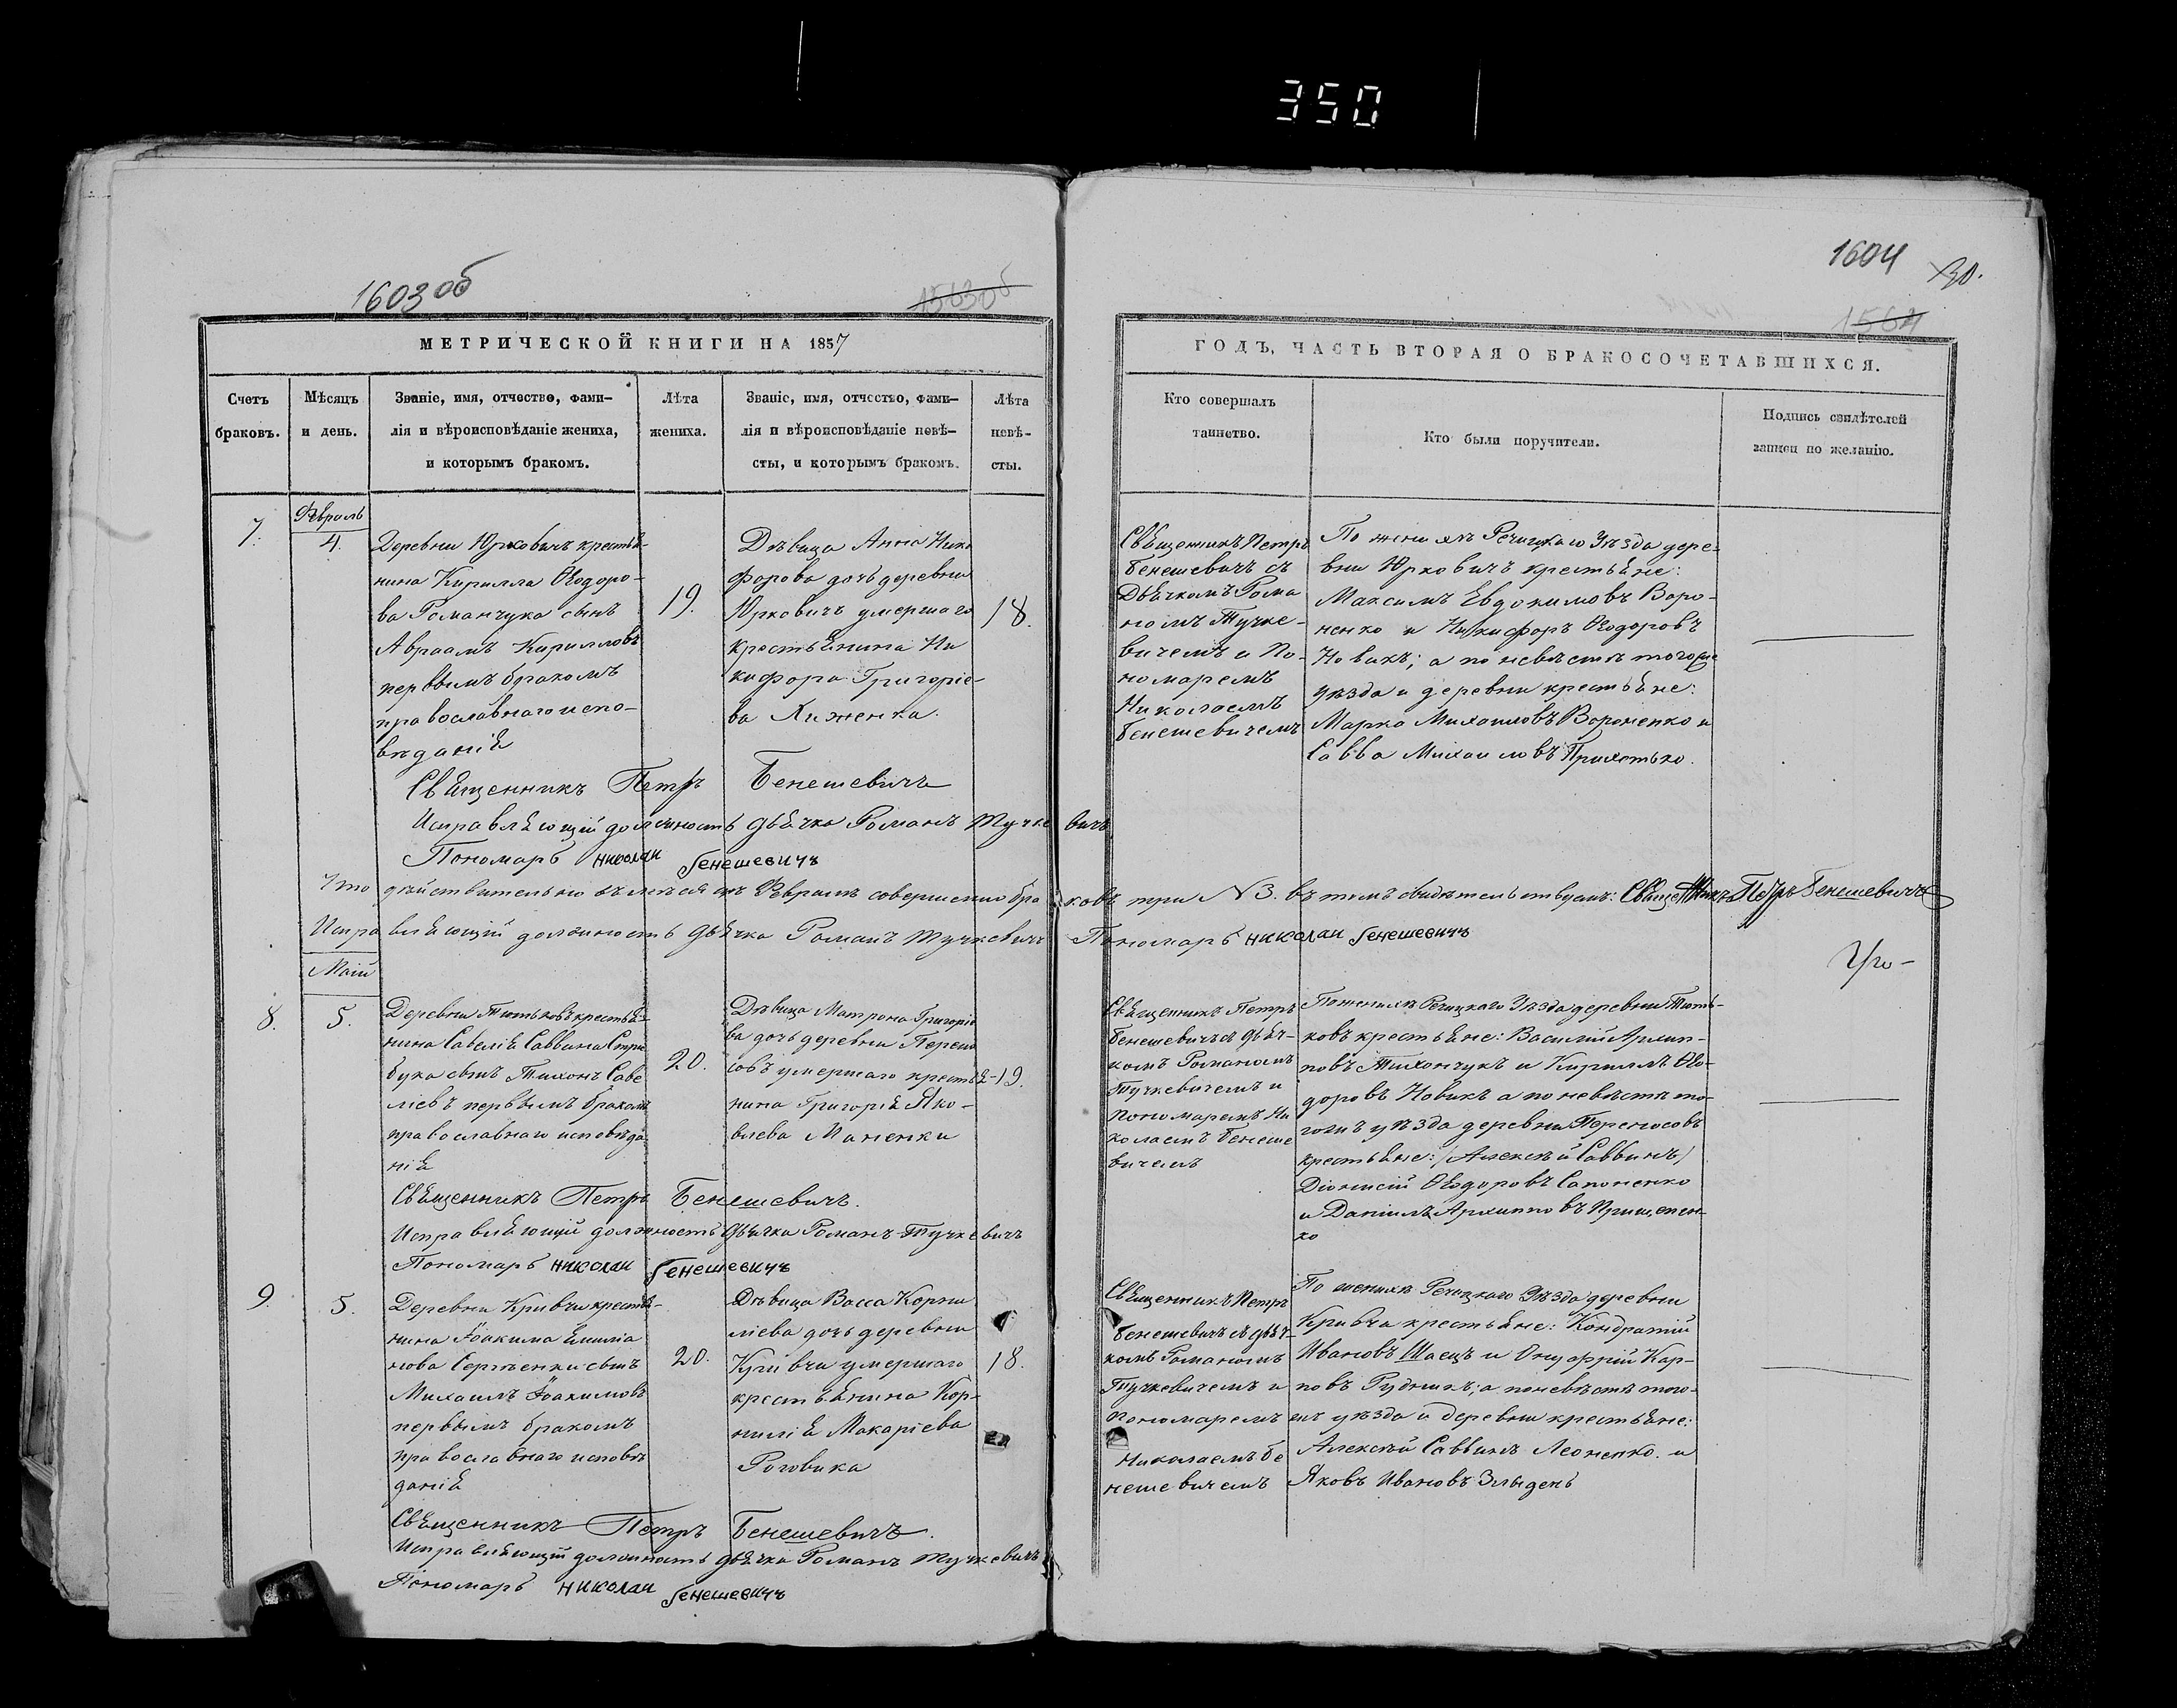 350
1603 об
1563 об
1604
30.
1564
МЕТРИЧЕСКОЙ КНИГИ НА 1857
ГОДЪ, ЧАСТЬ ВТОРАЯ О БРАКОСОЧЕТАВШИХСЯ.
Счетъ
браковъ.
Мѣсяцъ
и день.
Званіе, имя, отчество, фами-
лія и вѣроисповѣданіе жениха,
и которымъ бракомъ.
Лѣта
жениха.
Званіе, имя, отчество, фами-
лія и вѣроисповѣданіе невѣ-
сты, и которымъ бракомъ.
Лѣта
невѣ-
сты.
Кто совершалъ
таинство.
Кто были поручители.
Подпись свидѣтелей
записи по желанію.
7.
Февраль
4.
Деревни Юрковичъ крестья-
нина Кирилла Ѳеодоро-
ва Романчука сынъ
Авраамъ Кирилловъ
первымъ бракомъ
православнаго испо-
вѣданія
19.
Дѣвица Анна Ники
форова дочь деревни
Юрковичъ умершаго
крестьянина Ни
кифора Григоріе-
ва Хиженка.
18.
Священникъ Петръ
Бенешевичъ съ
Дьячкомъ Рома
номъ Тучке-
вичемъ и По-
номаремъ
Николаемъ
Бенешевичемъ
По женихѣ Речицкаго Уѣзда дере-
вни Юрковичъ крестьяне:
Максимъ Евдокимовъ Воро-
ненко и Никифоръ Ѳеодоровъ
Новикъ; а по невѣстѣ тогоже
уѣзда и деревни крестьяне:
Марко Михаиловъ Вороненко и
Савва Михаиловъ Прихотько.
Священникъ Петръ Бенешевичъ
Исправляющій должность дьячка Романъ Тучкевичъ
Пономарь Николаи Бенешевичъ
Что дѣйствительно въ Февралѣ совершенно браковъ три №3. въ томъ свидѣтельствуемъ: Священникъ Петръ Бенешевичъ
Исправляющій должность дьячка Романъ Тучкевичъ Пономарь Николаи Бенешевичъ
Маій
8.
5.
Деревни Титьковъ крестья-
нина Савелія Саввина Стри
бука сынъ Тихонъ Саве
ліевъ первымъ бракомъ
православнаго исповѣда
нія
20.
Дѣвица Матрона Григоріе
ва дочь деревни Перено
совъ умершаго крестья-
нина Григорія Яко-
влева Маненки
19.
Священникъ Петръ
Бенешевичъ съ дьяч-
комъ Романомъ
Тучкевичемъ и
Пономаремъ Ни
колаемъ Бенеше
вичемъ
По женихѣ Речицкаго Уѣзда деревни Тить-
ковъ крестьяне: Василій Архип-
повъ Тихончукъ и Кириллъ Ѳео-
доровъ Новикъ а по невѣстѣ то-
гожъ уѣзда деревни Переносовъ
крестьяне: /Алексѣй Саввинъ/
Діонисій Ѳеодоровъ Сапоненко
и Даніилъ Архипповъ Прищепен-
ко
Священникъ Петръ Бенешевичъ.
Исправляющій должность дьячка Романъ Тучкевичъ
Пономарь Николаи Бенешевичъ
9.
5.
Деревни Кривчи крестья-
нина Іоакима Емилiа
нова Сергѣенки сынъ
Михаилъ Іоакимовъ
первымъ бракомъ
православнаго исповѣ
данія
20.
Дѣвица Васса Корни
ліева дочь деревни
Кривчи умершаго
крестьянина Кор-
нилія Макаріева
Роговика
18.
Священникъ Петръ
Бенешевичъ съ дьяч-
комъ Романомъ
Тучкевичемъ и
пономаремъ
Николаемъ Бе
нешевичемъ
По женихѣ Речицкаго Уѣзда деревни
Кривча крестьяне: Кондратій
Ивановъ Шаецъ и Онуфрій Кар-
повъ Рудникъ; а по невѣстѣ того-
жъ уѣзда и деревни крестьяне:
Алексѣй Саввинъ Леоненко. и
Яковъ Ивановъ Злыдень
Священникъ Петръ Бенешевичъ.
Исправляющій должность дьячка Романъ Тучкевичъ
Пономарь Николаи Бенешевичъ